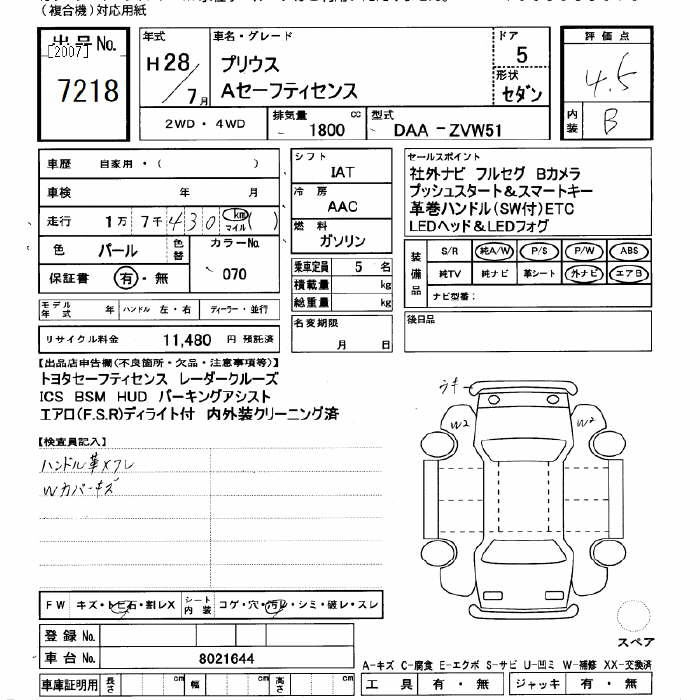 (複合機)対応用紙
出品No.
[2007]
7218
年式
H28/7月
車名・グレード
プリウス
Aセーフティセンス
ドア
5
形状
セダン
2WD・4WD
排気量
1800 cc
型式
DAA-ZVW51
評価点
4.5
内装
B
車歴 自家用・( )
車検 年 月
走行 1万7千430 km マイル ( )
色 パール
色替
カラーNo.
070
保証書 有・無
シフト
IAT
冷房
AAC
燃料
ガソリン
乗車定員 5 名
積載量 kg
総重量 kg
セールスポイント
社外ナビ フルセグ Bカメラ
プッシュスタート&スマートキー
革巻ハンドル(SW付)ETC
LEDヘッド&LEDフォグ
装備品
S/R 純A/W P/S P/W ABS
純TV 純ナビ 革シート 外ナビ エアB
ナビ型番:
モデル年式 年 ハンドル 左・右 ディーラー・並行
リサイクル料金 11,480 円 預託済
名変期限
月 日
後日品
【出品店申告欄(不良箇所・欠品・注意事項等)】
トヨタセーフティセンス レーダークルーズ
ICS BSM HUD パーキングアシスト
エアロ(F.S.R)ディライト付 内外装クリーニング済
【検査員記入】
ハンドル革スレ
Wカバーキズ
W2
W2
FW キズ・トビ石・割レX
シート内装 コゲ・穴・汚レ・シミ・破レ・スレ
登録No.
車台No. 8021644
車庫証明用 長さ cm 幅 cm 高さ cm
スペア
A-キズ C-腐食 E-エクボ S-サビ U-凹ミ W-補修 XX-交換済
工具 有・無 ジャッキ 有・無